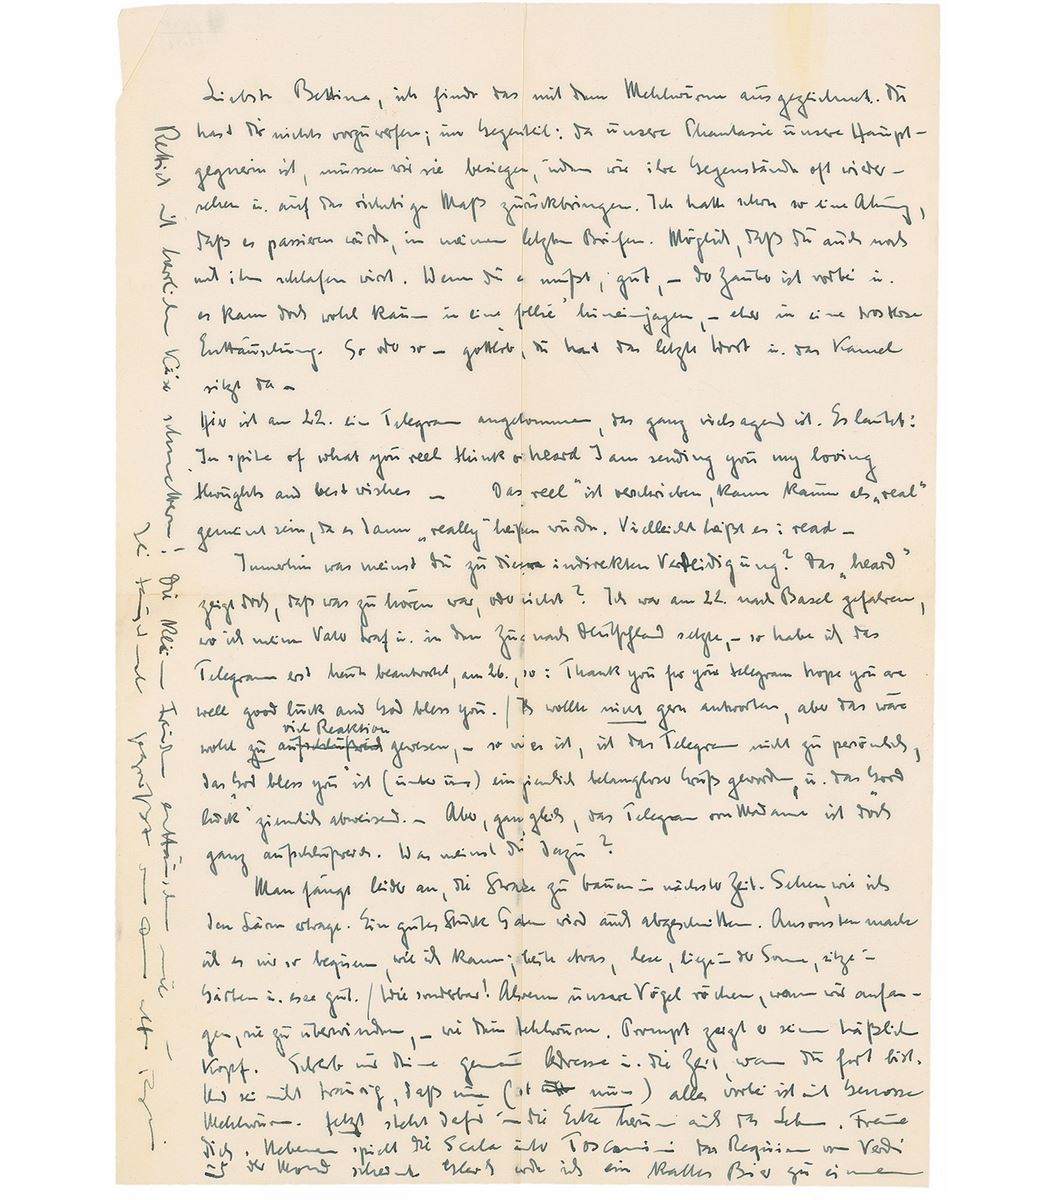 Liebste Bettina, ich finde das mit dem Mehlwurm ausgezeichnet. Du
hast Dir nichts vorzuwerfen; im Gegenteil: da unsere Phantasie unsere Haupt-
gegnerin ist, müssen wir sie besiegen, indem wir ihre Gegenstände oft wieder-
sehen u. auf das richtige Maß zurückbringen. Ich hatte schon so eine Ahnung,
daß es passieren würde, in meinen letzten Briefen. Möglich, daß Du auch noch
mit ihm schlafen wirst. Wenn Du es mußt, gut, – der Zauber ist vorbei u.
es kann doch wohl kaum in eine „folie" hineinjagen, – eher in eine trostlose
Enttäuschung. So oder so – gottlob, Du hast das letzte Wort u. das Kamel
sitzt da –
Hier ist am 22. ein Telegram angekommen, das ganz vielsagend ist. Es lautet:
In spite of what you reel think or heard I am sending you my loving
thoughts and best wishes – Das „reel" ist verschrieben, kann kaum als „real"
gemeint sein, da es dann „really" heißen würde. Vielleicht heißt es: read –
Immerhin was meinst Du zu dieser indirekten Verteidigung? Das „heard"
zeigt doch, daß was zu hören war, oder nicht? Ich war am 22. nach Basel gefahren,
wo ich meinen Vater traf u. in den Zug nach Deutschland setzte, – so habe ich das
Telegramm erst heute beantwortet, am 26., so: Thank you for your telegram hope you are
well good luck and God bless you. / Ich wollte nicht gern antworten, aber das wäre
viel Reaktion
wohl zu aufschlußreich gewesen, – so wie es ist, ist das Telegram nicht zu persönlich,
das „God bless you" ist (unter uns) ein ziemlich belangloser Gruß geworden, u. das „Good
luck" ziemlich abweisend. – Aber, ganz gleich, das Telegram von Madame ist doch
ganz aufschlußreich. Was meinst Du dazu?
Man fängt leider an, die Straße zu bauen in nächster Zeit. Sehen, wie ich
den Lärm ertrage. Ein gutes Stück Garten wird auch abgeschnitten. Ansonsten mache
ich es mir so bequem, wie ich kann; etwas, lese, liege in der Sonne, sitze im
Garten u. esse gut. / Wie sonderbar! Als wenn unsere Vögel röchen, wann wir anfan-
gen, sie zu überwinden, – wie Dein Mehlwurm. Prompt zeigt er seinen häßlichen
Kopf. Schreib mir Deine genaue Adresse u. die Zeit, wann Du fort bist.
Und sei nicht traurig, daß nun (ist nun) alles vorbei ist mit Genosse
Mehlwurm. Jetzt steht dafür um die Ecke herum auch das Leben. Freue
Dich. Nebenan spielt die Scala unter Toscanini das Requiem von Verdi
und der Mond scheint. Gleich werde ich ein kaltes Bier zu einem
Rettich mit herrlichem Käse schmettern! Die kleinen Freuden enttäuschen nie –
Sei tausend gegrüßt von Deinem alten